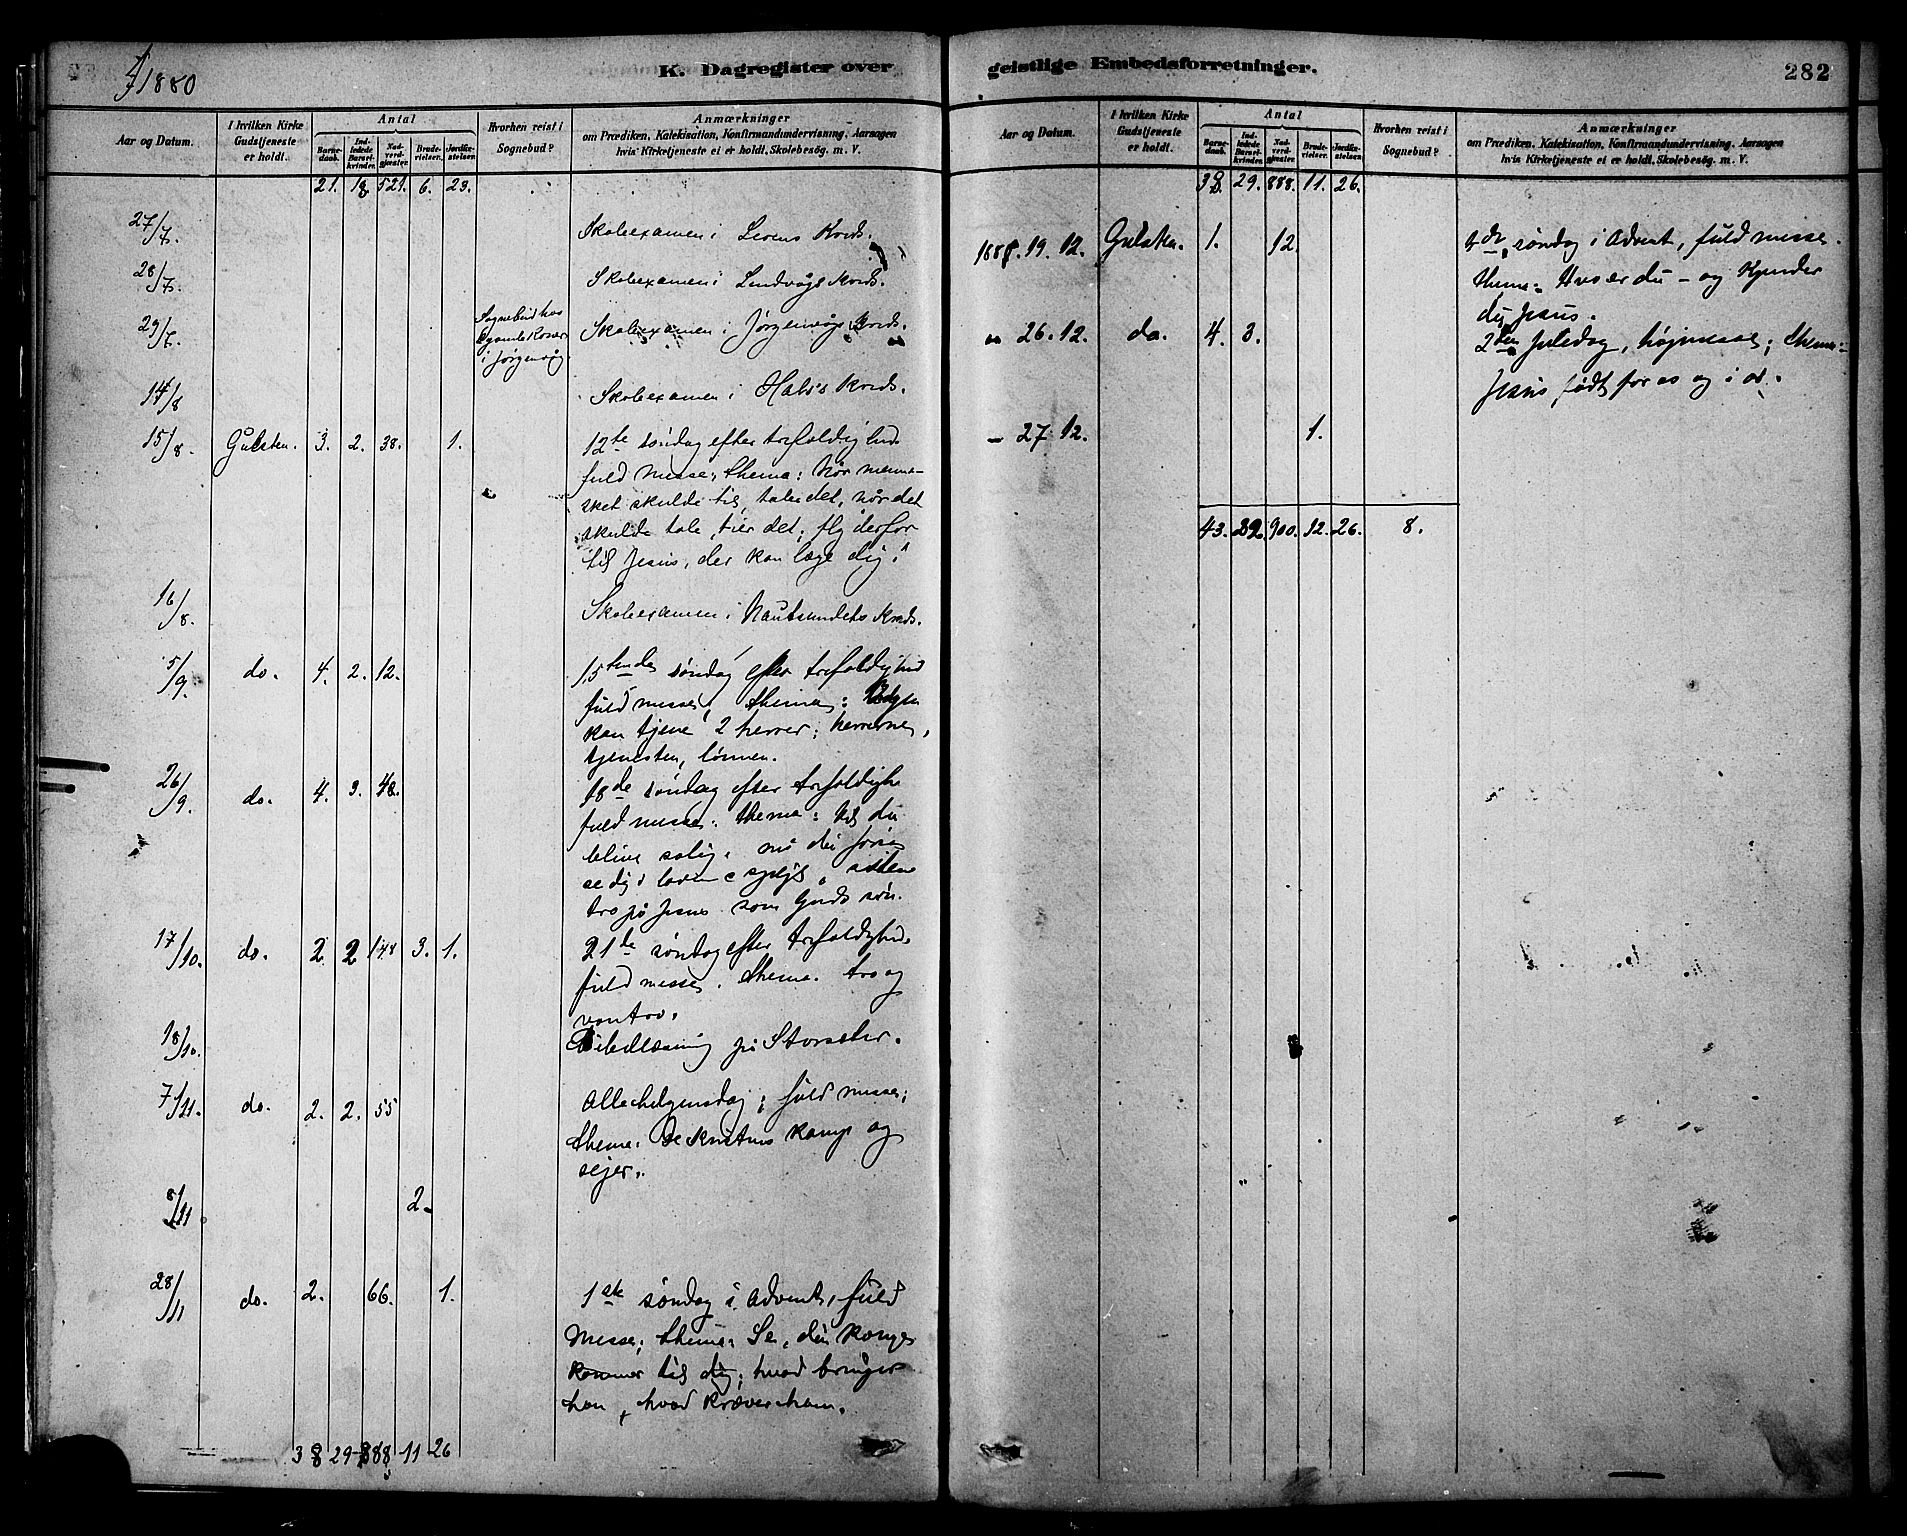 1880
K. Dagregister over
Aar og Datum.
I hvilken Kirke
Gudstjeneste
er holdt.
Antal
Barne-
daab.
Ind-
ledede
Barsel-
kvinder.
Nad-
verd-
gjester.
Brude-
vielser.
Jordfæ-
stelser.
Hvorhen reist i
Sognebud?
Anmærkninger
om Prædiken, Katekisation, Konfirmandundervisning, Aarsagen
hvis Kirketjeneste ei er holdt, Skolebesøg. m. V.
21. 18 521. 6. 23.
27/7. Skoleexamen i Kreds.
28/7. Skoleexamen i Lendvågs Kreds.
29/7. Sognebud hos
i Jørgenvåg
Skoleexamen i Jørgenvågs Kreds.
14/8 Skoleexamen i Halsis Kreds.
15/8. Gulsten. 3. 2. 38. 1. 12te søndag efter trefoldighed
fuld messe; thema: Når menne-
sket skulde tie, taler det, når det
skulde tale, tier det; fly derfor
til Jesus, der kan læge dig.
16/8. Skoleexamen i Nautsundets Kreds.
5/9. do. 4. 2. 12. 15tende søndag efter trefoldighed
fuld messe, thema: Ingen
kan tjene 2 herrer; herrerne,
tjenesten, lønnen.
26/9. do. 4. 3. 48. 18de søndag efter trefoldighe
fuld messe. thema: Vil du
blive salig, må du først
se dig i lovens spejl, siden
tro på Jesus som Guds søn.
17/10. do. 2 2 148 3. 1. 21de søndag efter trefoldighed.
fuld messe. thema. tro og
vantro.
18/10. Bibellæsning på Storsæter.
7/11. do. 2. 2. 55 Allehelgensdag; fuld messe;
thema: De kristnes kamp og
sejer.
8/11 2.
28/11 do. 2. 66. 1. 1ste søndag i Advent, fuld
messe; thema: Se, din konge
kommer til dig; hvad bringer
han, hvad kræver han.
38 29 888 11 26
geistlige Embedsforretninger.
282
Aar og Datum.
I hvilken Kirke
Gudstjeneste
er holdt.
Antal
Barne-
daab.
Ind-
ledede
Barsel-
kvinder.
Nad-
verd-
gjester.
Brude-
vielser.
Jordfæ-
stelser.
Hvorhen reist i
Sognebud?
Anmærkninger
om Prædiken, Katekisation, Konfirmandundervisning, Aarsagen
hvis Kirketjeneste ei er holdt, Skolebesøg. m. V.
38. 29. 888. 11. 26.
1880. 19. 12. Gulsten. 1. 12. søndag i Advent, fuld messe.
thema: Hvo er du - og Kjender
du Jesus.
26. 12. do. 4. 3. 2den Juledag, højmesse; thema:
Jesus født for os og i os.
- 27 12. 1.
43. 32. 900. 12. 26. 8.